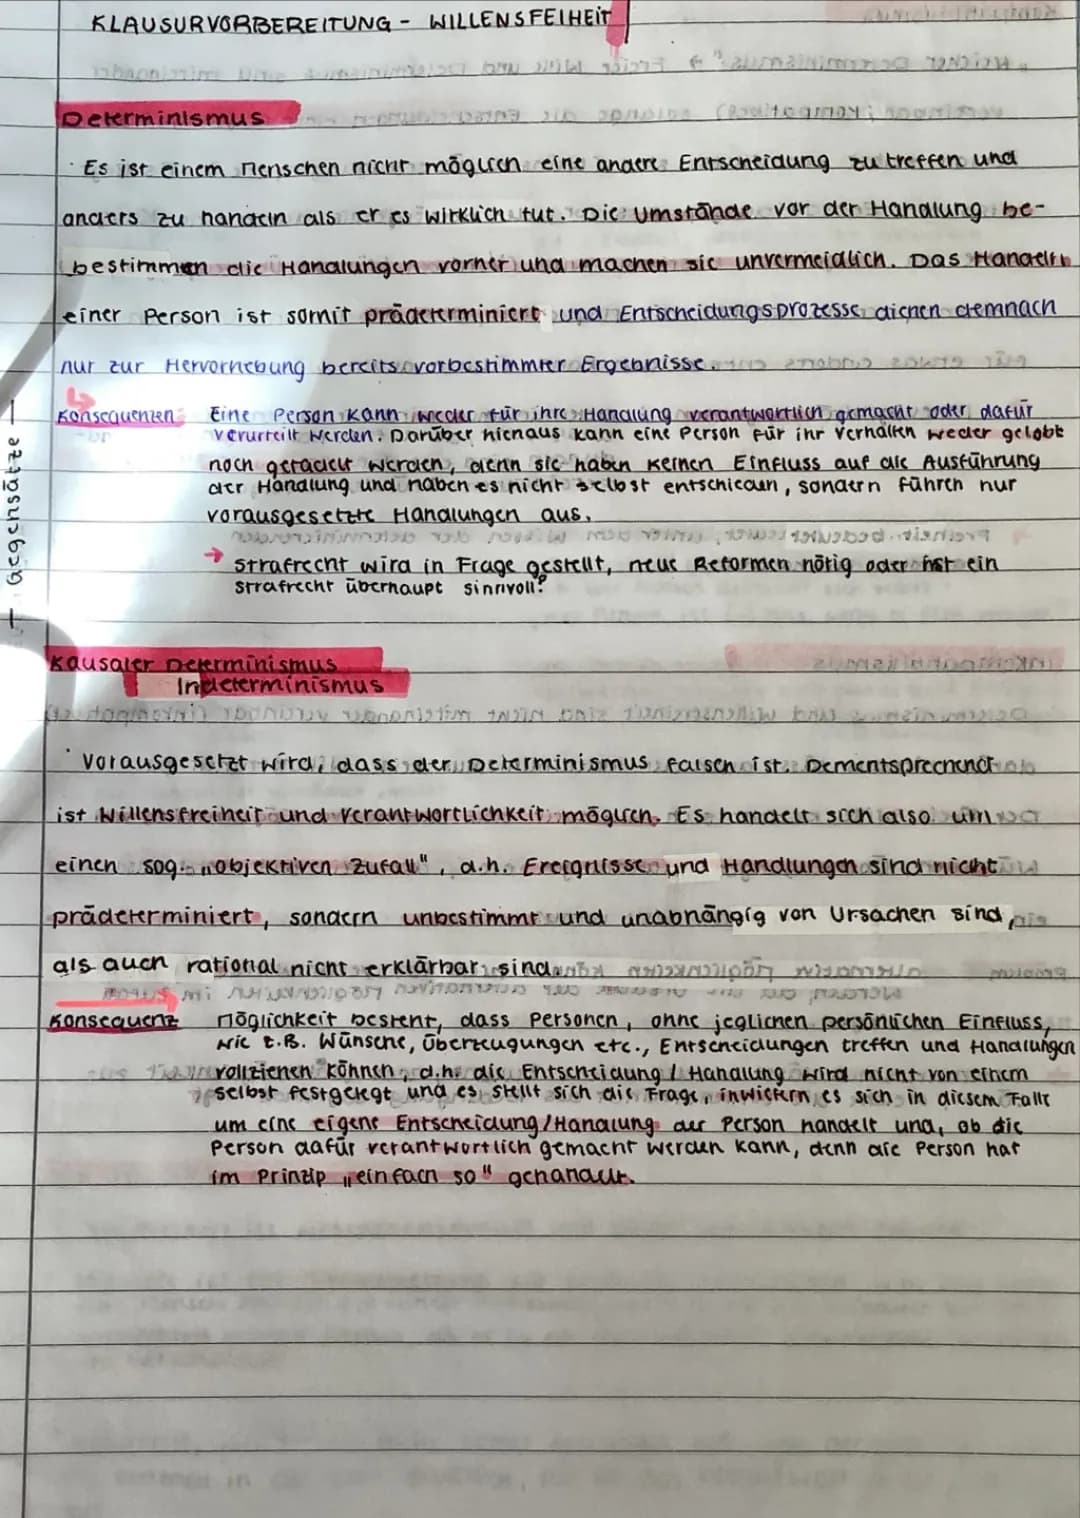 KLAUSURVORBEREITUNG - WILLENSFEIHEIT
Determinismus
· Es ist einem Menschen nicht möglich eine andere Entscheidung zu treffen und
anders zu handeln als er es wirklich tut. Die Umstände vor der Handlung be-
bestimmen die Handlungen vorher und machen sie unvermeidlich. Das Handeln
einer Person ist somit prädeterminiert und Entscheidungsprozesse dienen demnach
nur zur Hervorhebung bereits vorbestimmter Ergebnisse.
Konsequenzen: Eine Person kann weder für ihre Handlung verantwortlich gemacht oder dafür
verurteilt werden. Darüber hienaus kann eine Person für ihr Verhalten weder gelobt
noch getadelt werden, denn sie haben keinen Einfluss auf die Ausführung
der Handlung und haben es nicht selbst entschieden, sondern führen nur
vorausgesetzte Handlungen aus.
→ Strafrecht wird in Frage gestellt, neue Reformen nötig oder ist ein
Strafrecht überhaupt sinnvoll?
← Gegensätze →
Kausaler Determinismus
Indeterminismus
· Vorausgesetzt wird, dass der Determinismus falsch ist. Dementsprechend
ist Willensfreiheit und Verantwortlichkeit möglich. Es handelt sich also um
einen sog. „objektiven Zufall", d.h. Ereignisse und Handlungen sind nicht
prädeterminiert, sondern unbestimmt und unabhängig von Ursachen sind,
als auch rational nicht erklärbar sind.
Konsequenz Möglichkeit besteht, dass Personen, ohne jeglichen persönlichen Einfluss,
wie z.B. Wünsche, Überzeugungen etc., Entscheidungen treffen und Handlungen
vollziehen können, d.h. die Entscheidung / Handlung wird nicht von einem
selbst festgelegt und es stellt sich die Frage, inwiefern es sich in diesem Falle
um eine eigene Entscheidung/Handlung der Person handelt und, ob die
Person dafür verantwortlich gemacht werden kann, denn die Person hat
im Prinzip „einfach so" gehandelt.